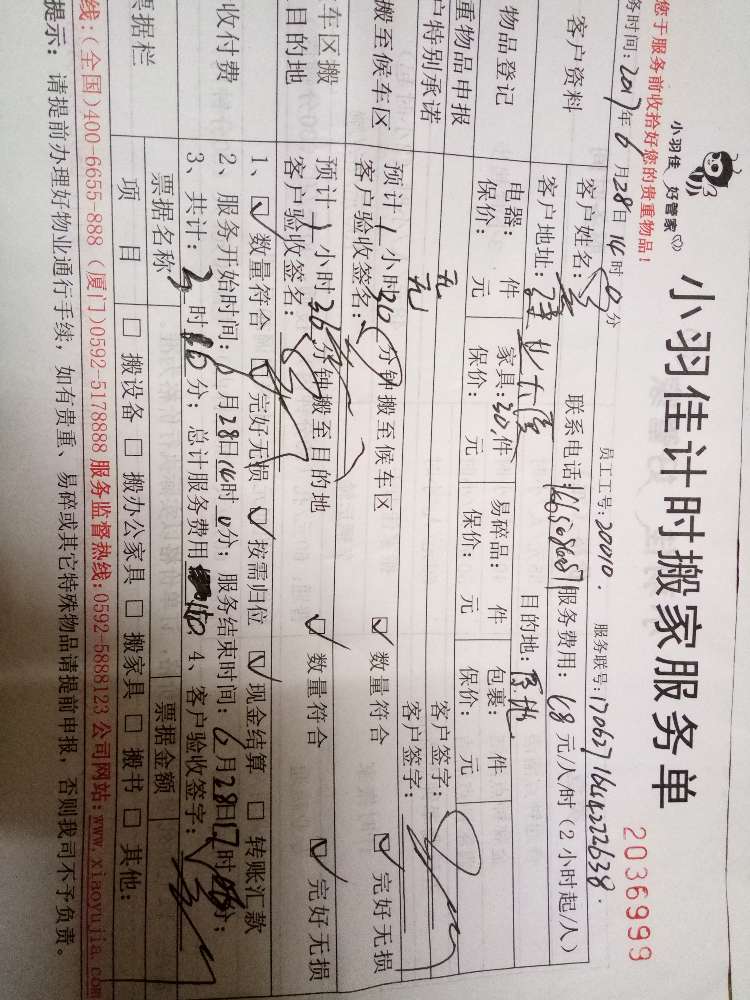 您于服务前收拾好您的贵重物品!
务时间: 2017年6月28日14时0分
小羽佳 好管家
小羽佳计时搬家服务单
2036999
员工工号: 20010. 服务联号: 170627164422638.
客户资料
客户姓名:
联系电话:
服务费用: 68元/人/时 (2小时起/人)
客户地址:
目的地:
物品登记
电器: 件
家具: 30件
易碎品: 件
包裹: 件
保价: 元
保价: 元
保价: 元
保价: 元
重物品申报
户特别承诺
无
无
客户签字:
客户签字:
搬至候车区
预计1小时30分钟搬至候车区
数量符合
完好无损
客户验收签名:
车区搬
目的地
预计1小时 分钟搬至目的地
数量符合
完好无损
客户验收签名:
收付费
1、数量符合 完好无损 按需归位 现金结算 转账汇款
2、服务开始时间: 6月28日14时0分; 服务结束时间: 6月28日17时 分;
3、共计: 时 分; 总计服务费用 4、客户验收签字:
票据栏
票据名称
票据金额
项目
搬设备 搬办公家具 搬家具 搬书 其他:
线:(全国)400-6655-888 (厦门)0592-5178888 服务监督热线:0592-5888123 公司网站:www.xiaoyujia.com
提示: 请提前办理好物业通行手续, 如有贵重、易碎或其它特殊物品请提前申报, 否则我司不予负责。